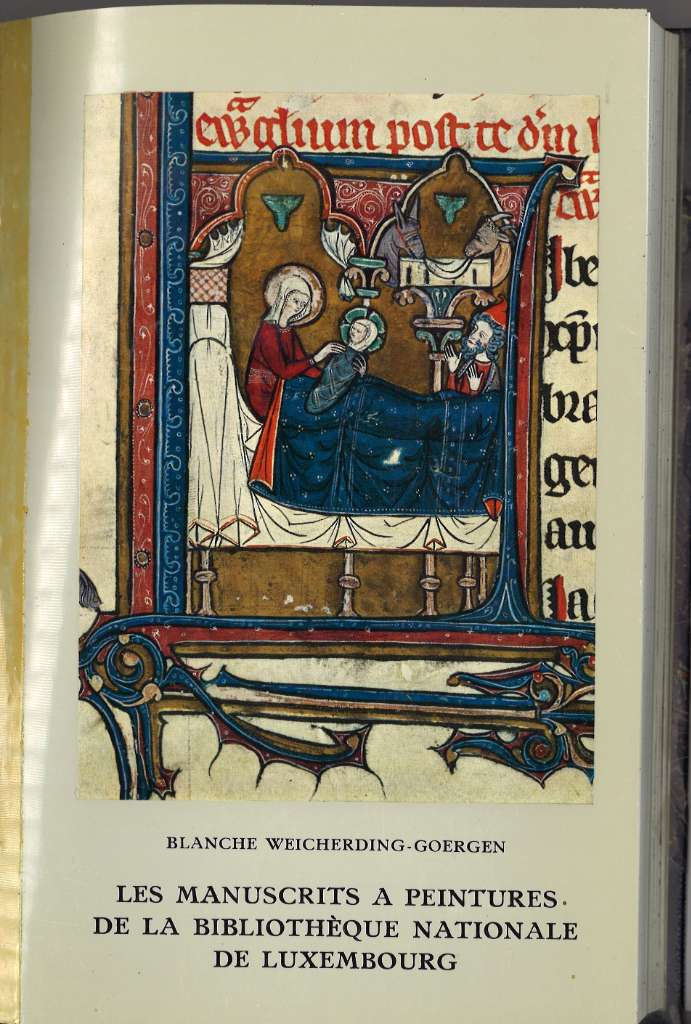 ewgelium post te dm
BLANCHE WEICHERDING-GOERGEN
LES MANUSCRITS A PEINTURES
DE LA BIBLIOTHÈQUE NATIONALE
DE LUXEMBOURG